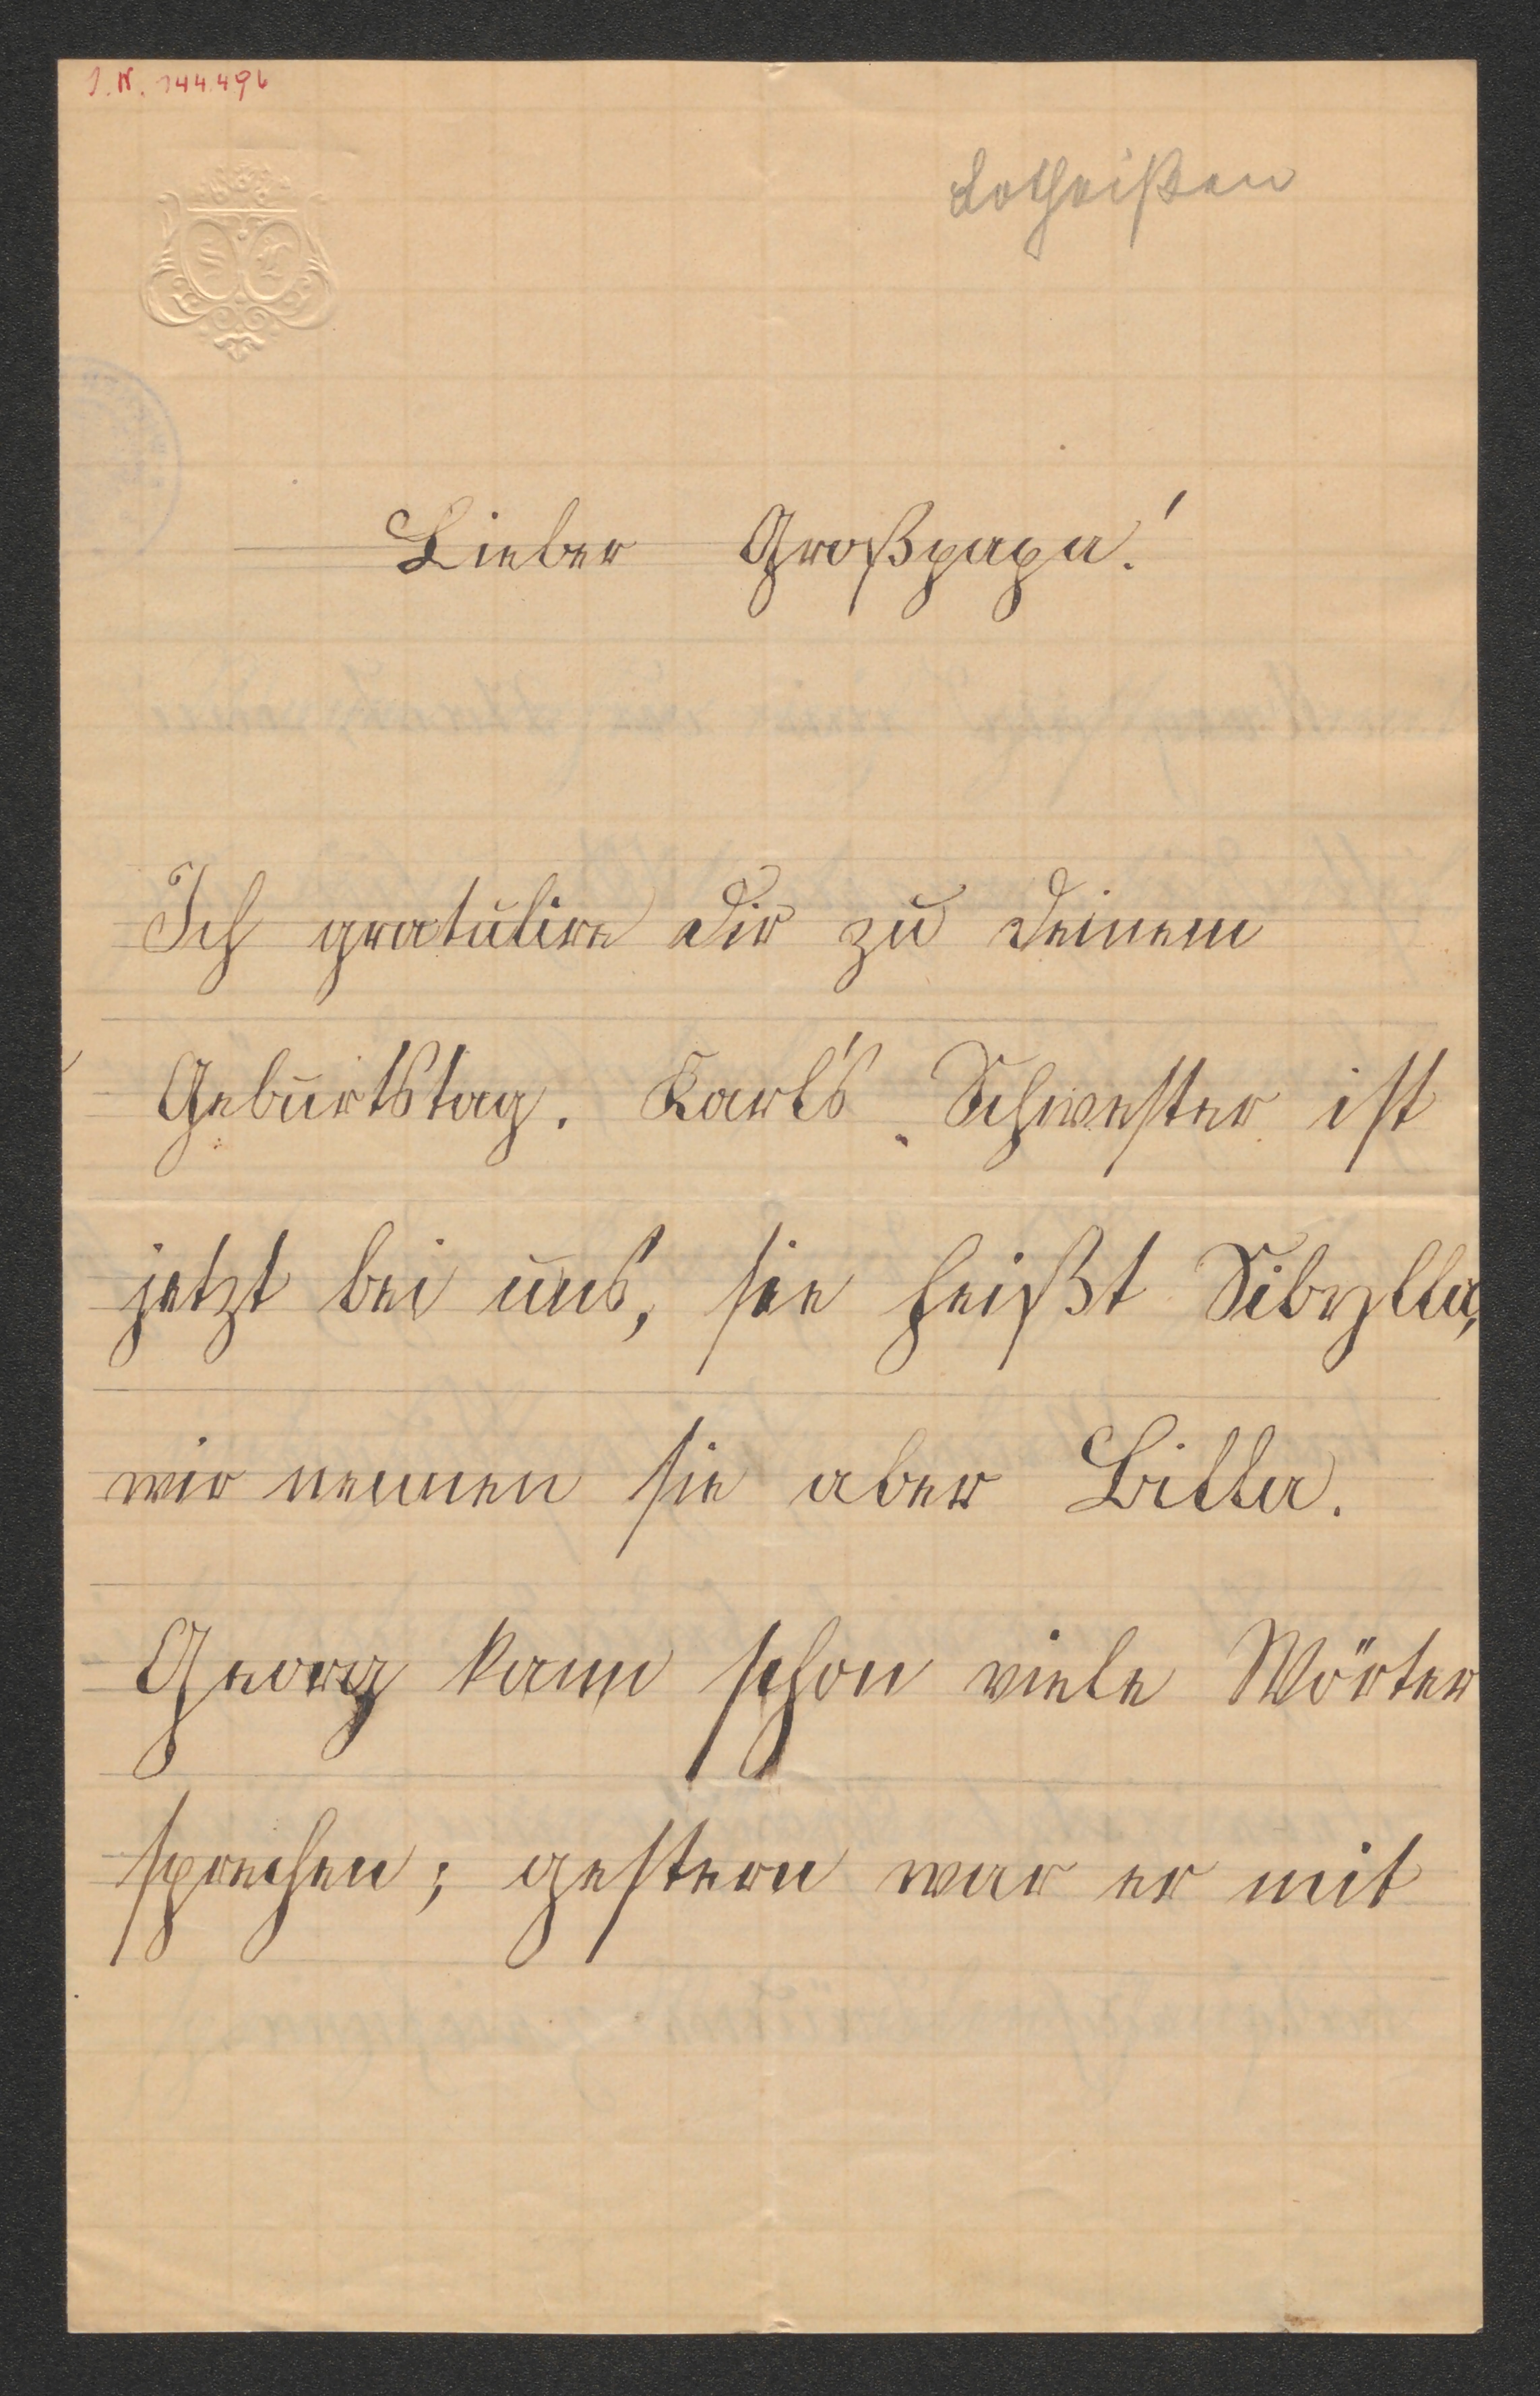 J.N. 144.496
Lotheißen
S L
Lieber Großpapa!
Ich gratulire dir zu deinem
Geburtstag. Karl's Schwester ist
jetzt bei uns, sie heißt Sibylla,
wir nennen sie aber Billa.
Georg kann schon viele Wörter
sprechen; gestern war er mit